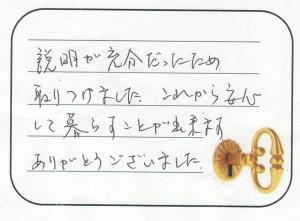 説明が充分だったため
取りつけました。これから安心
して暮らすことが出来ます
ありがとうございました。